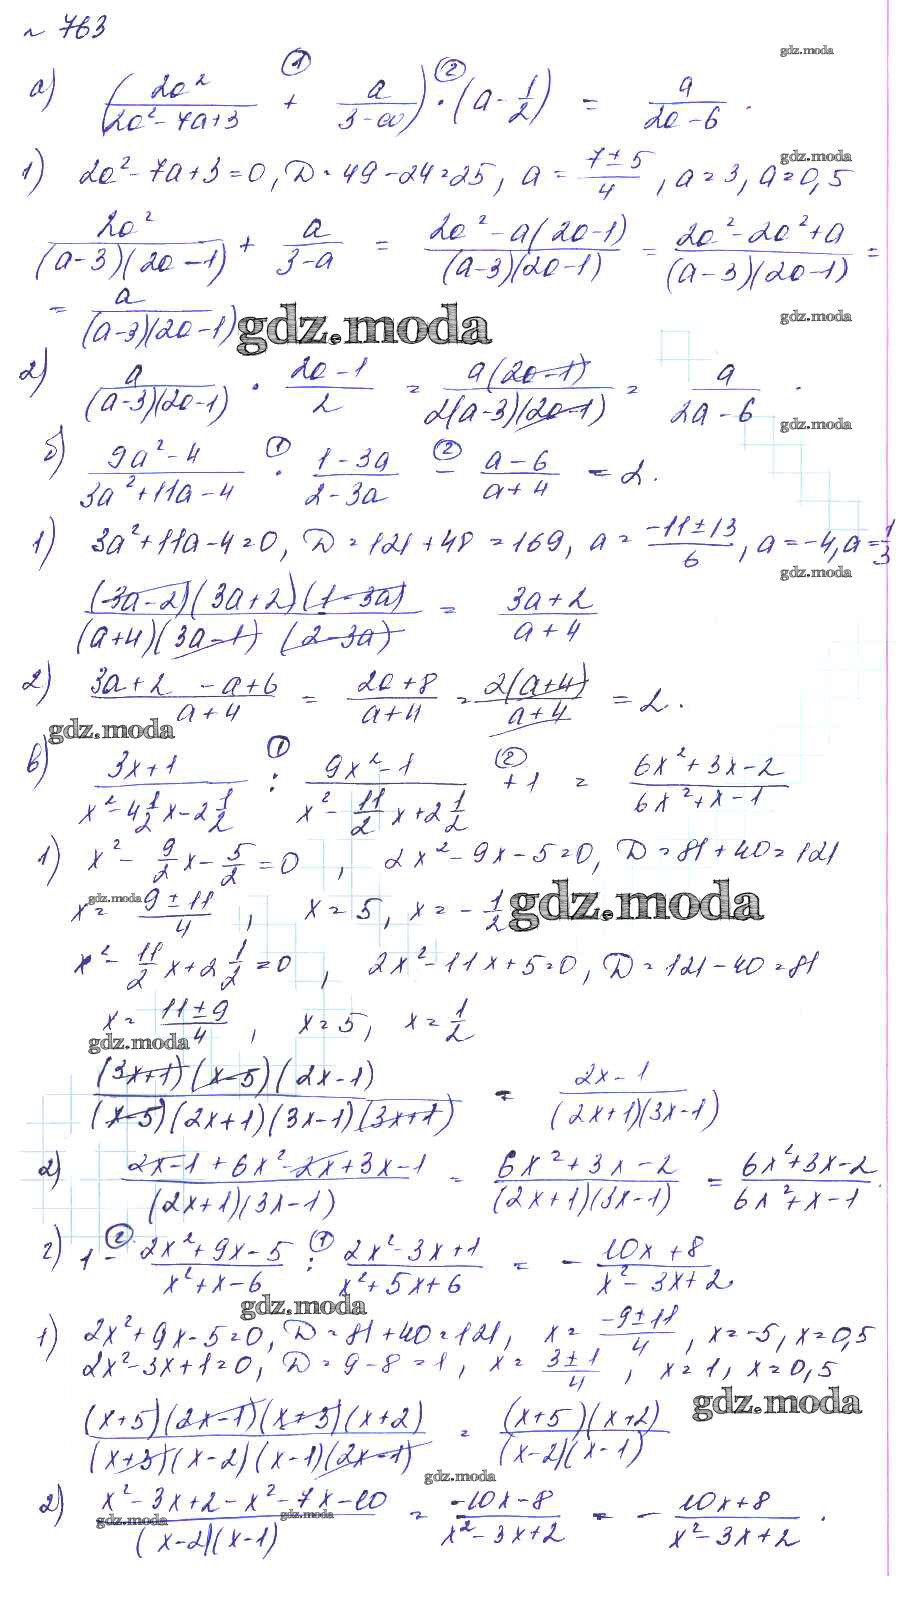 № 763
gdz.moda
а) (2a²/(2a²-7a+3) +① a/(3-a)) ·② (a - 1/2) = a/(2a-6).
gdz.moda
1) 2a²-7a+3=0, D=49-24=25, a = (7±5)/4, a=3, a=0,5
2a²/((a-3)(2a-1)) + a/(3-a) = (2a²-a(2a-1))/((a-3)(2a-1)) = (2a²-2a²+a)/((a-3)(2a-1)) =
= a/((a-3)(2a-1)) gdz.moda gdz.moda
2) a/((a-3)(2a-1)) · (2a-1)/2 = a(2a-1)/(2(a-3)(2a-1)) = a/(2a-6).
gdz.moda
б) (9a²-4)/(3a²+11a-4) ·① (1-3a)/(2-3a) -② (a-6)/(a+4) = 2.
1) 3a²+11a-4=0, D=121+48=169, a = (-11±13)/6, a=-4, a=1/3
gdz.moda
(3a-2)(3a+2)(1-3a)/((a+4)(3a-1)(2-3a)) = (3a+2)/(a+4)
2) (3a+2 -a+6)/(a+4) = (2a+8)/(a+4) = 2(a+4)/(a+4) = 2.
gdz.moda
в) (3x+1)/(x²-4 1/2 x-2 1/2) :① (9x²-1)/(x²- 11/2 x+2 1/2) +② 1 = (6x²+3x-2)/(6x²+x-1)
1) x² - 9/2 x - 5/2 = 0, 2x²-9x-5=0, D=81+40=121
gdz.moda
x = (9±11)/4, x=5, x=-1/2 gdz.moda
x² - 11/2 x + 2 1/2 = 0, 2x²-11x+5=0, D=121-40=81
x = (11±9)/4, x=5, x=1/2
gdz.moda
(3x+1)(x-5)(2x-1)/((x-5)(2x+1)(3x-1)(3x+1)) = (2x-1)/((2x+1)(3x-1))
2) (2x-1+6x²-2x+3x-1)/((2x+1)(3x-1)) = (6x²+3x-2)/((2x+1)(3x-1)) = (6x²+3x-2)/(6x²+x-1).
г) 1 -② (2x²+9x-5)/(x²+x-6) :① (2x²-3x+1)/(x²+5x+6) = - (10x+8)/(x²-3x+2)
gdz.moda
1) 2x²+9x-5=0, D=81+40=121, x = (-9±11)/4, x=-5, x=0,5
2x²-3x+1=0, D=9-8=1, x = (3±1)/4, x=1, x=0,5
gdz.moda
(x+5)(2x-1)(x+3)(x+2)/((x+3)(x-2)(x-1)(2x-1)) = (x+5)(x+2)/((x-2)(x-1))
gdz.moda
2) (x²-3x+2-x²-7x-10)/((x-2)(x-1)) = (-10x-8)/(x²-3x+2) = - (10x+8)/(x²-3x+2).
gdz.moda gdz.moda